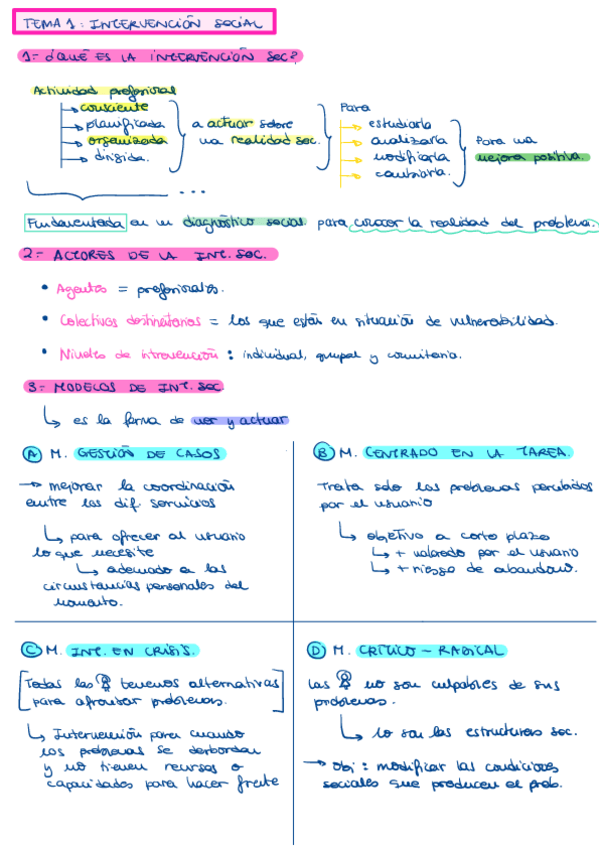 TEMA 1: INTERVENCIÓN SOCIAL
1- ¿QUÉ ES LA INTERVENCIÓN SOC?
Actividad profesional
→ consciente
→ planificada
→ organizada
→ dirigida.
a actuar sobre
una realidad soc.
Para
→ estudiarla
→ analizarla
→ modificarla
→ cambiarla.
Para una
mejora positiva.
...
Fundamentada en un diagnóstico social para conocer la realidad del problema.
2- ACTORES DE LA INT. SOC.
• Agentes = profesionales.
• Colectivos destinatarios = los que están en situación de vulnerabilidad.
• Niveles de intervención: individual, grupal y comunitaria.
3- MODELOS DE INT. SOC
↳ es la forma de ver y actuar
A M. GESTIÓN DE CASOS
→ mejorar la coordinación
entre los dif. servicios
↳ para ofrecer al usuario
lo que necesite
↳ adecuado a las
circustancias personales del
momento.
B M. CENTRADO EN LA TAREA.
Trata solo los problemas percibidos
por el usuario
↳ objetivo a corto plazo
↳ + valorado por el usuario
↳ + riesgo de abandono.
C M. INT. EN CRISIS.
Todas las tenemos alternativas
para afrontar problemas.
↳ Intervención para cuando
los problemas se desbordan
y no tienen recursos o
capacidades para hacer frente
D M. CRÍTICO - RADICAL
Las no son culpables de sus
problemas.
↳ lo son las estructuras soc.
→ Obj: modificar las condiciones
sociales que producen el prob.